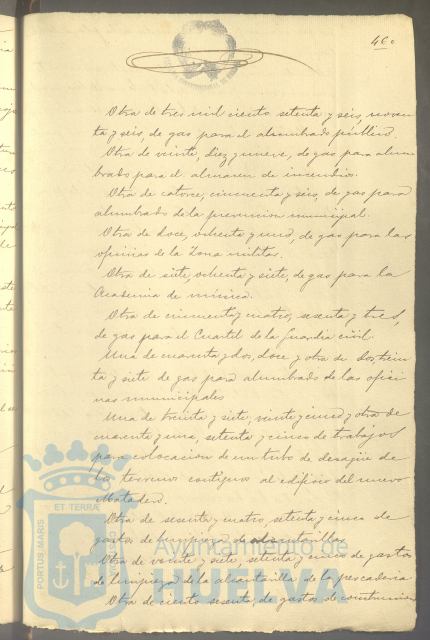 460
Otra de tres mil ciento setenta y seis, noven
ta y seis, de gas para el alumbrado público.
Otra de veinte, diez y nueve, de gas para alum
brado para el almacen de incendios.
Otra de catorce, cincuenta y seis, de gas para
alumbrado de la prevencion municipal.
Otra de doce, ochenta y uno, de gas para las
oficinas de la Zona militar.
Otra de siete, ochenta y siete, de gas para la
Academia de música.
Otra de cincuenta y cuatro, sesenta y tres,
de gas para el Cuartel de la Guardia civil.
Una de cuarenta y dos, doce y otra de dos, trein
ta y siete de gas para alumbrado de las ofici
nas municipales
Una de treinta y siete, veinte y cinco y otra de
cuarenta y una, setenta y cinco de trabajos
para colocacion de un tubo de desagüe de
los terrenos contiguos al edificio del nuevo
Matadero.
Otra de sesenta y cuatro, setenta y cinco de
gastos de limpieza de alcantarillas
Otra de veinte y siete, setenta y cinco de gastos
de limpieza de la alcantarilla de la pescaderia
Otra de ciento sesenta, de gastos de construccion
PORTUS MARIS ET TERRÆ
Ayuntamiento de
HUELVA